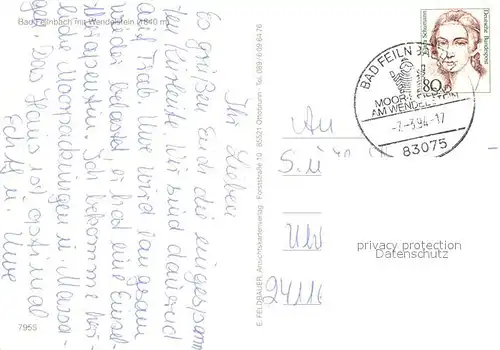 Bad Feilnbach mit Wendelstein (1840 m)
Ihr Lieben
Es grüßen Euch die eingespann
ten Kurleute. Wir sind dauernd
auf Trab. Uwe wird langsam
wieder belastet, er hat eine Einzel-
therapeutin. Ich bekomme herr-
liche Moorpackungen u. Massa-
gen. Das Haus ist optimal
u. Uwe
795S
E. FELDBAUER, Ansichtskartenverlag · Forststraße 10 · 80521 Ottobrunn · Tel. 089/6 09 64 76
Deutsche Bundespost
Schumann
80
BAD FEILNBACH
MOOR-HEILBAD
AM WENDELSTEIN
-7.-3.94.-17
83075
An
24116
privacy protection
Datenschutz